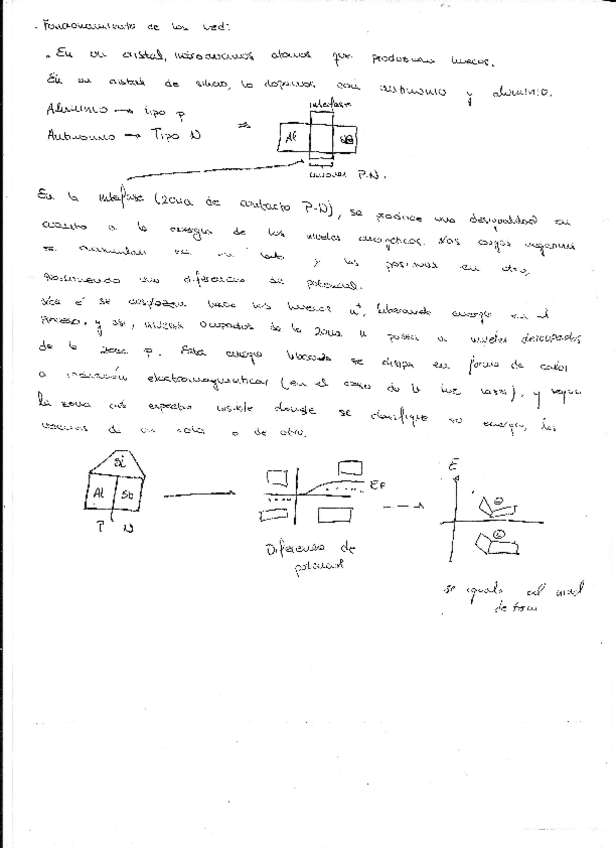 . Funcionamiento de los led:
. En un cristal, introducimos atomos que producen huecos.
En un cristal de silicio, lo dopamos con antimonio y aluminio.
interfase
Aluminio → tipo p
Antimonio → Tipo N ⇒ Al Sb
uniones P.N.
En la interfase (zona de contacto P-N), se produce una desigualdad en
cuanto a la energia de los niveles energéticos. Las cargas negativas
se aumentan en un lado y las positivas en otro,
una diferencia de potencial.
é se desplazan hacia los huecos liberando energia en el
proceso, y se, niveles ocupados de la zona n pasan a niveles desocupados
de la zona p. Esta energia liberada se disipa en forma de calor
o radiación electromagnetica (en el caso de la luz ), y según
la zona del espectro visible donde se clasifique su energia, los
veremos de un color o de otro.
Si
Al Sb
P N
EF
Diferencia de
potencial
E
se iguala el nivel
de